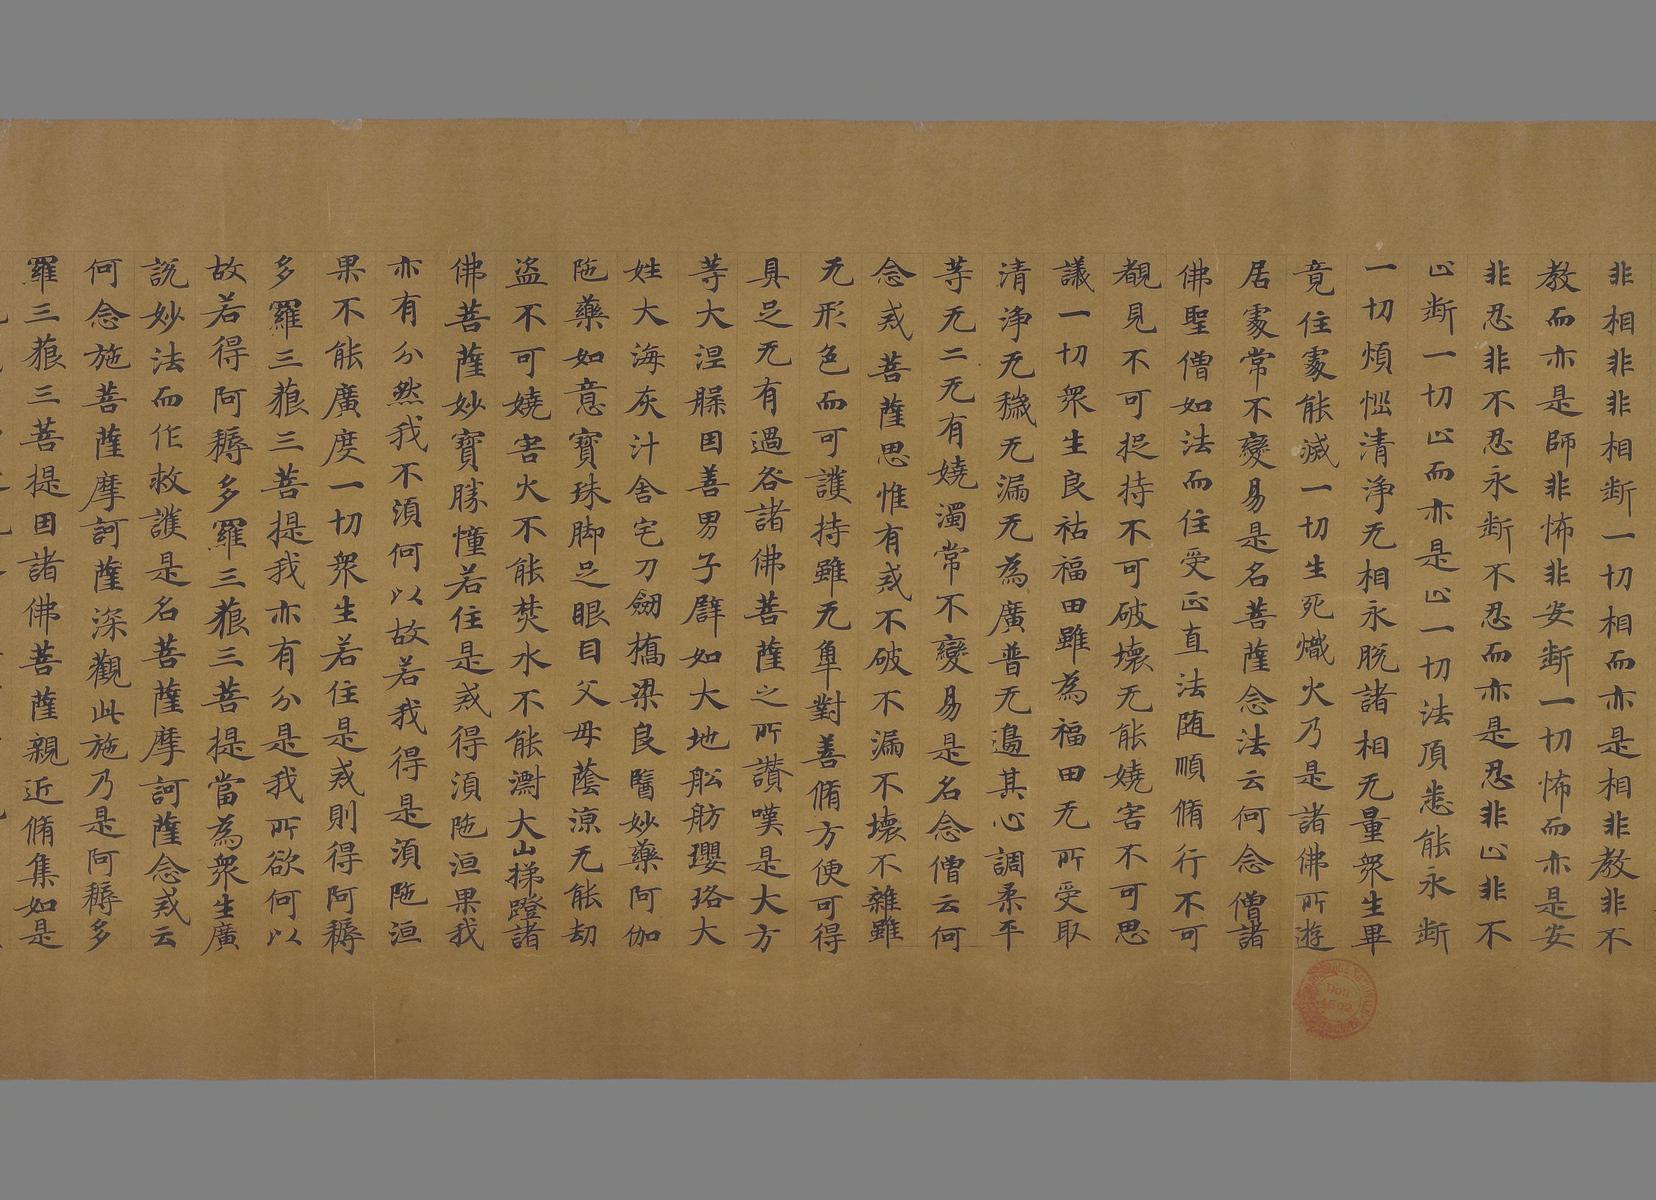 非相非非相断一切相而亦是相非教非不
教而亦是師非怖非安断一切怖而亦是安
非忍非不忍永断不忍而亦是忍非心非不
心断一切心而亦是心一切法頂悉能永断
一切煩惱清浄无相永脱諸相无量衆生畢
竟住處能滅一切生死熾火乃是諸佛所遊
居處常不變易是名菩薩念法云何念僧諸
佛聖僧如法而住受正直法随順脩行不可
覩見不可捉持不可破壞无能嬈害不可思
議一切衆生良祐福田雖為福田无所受取
清浄无穢无漏无為廣普无邉其心調柔平
等无二无有嬈濁常不變易是名念僧云何
念戒菩薩思惟有戒不破不漏不壞不雜雖
无形色而可護持雖无㪯對善脩方便可得
具足无有過咎諸佛菩薩之所讃嘆是大方
等大涅槃因善男子譬如大地舩舫瓔珞大
姓大海灰汁舎宅刀劒橋梁良醫妙藥阿伽
陁藥如意寶珠脚足眼目父母蔭涼无能劫
盗不可嬈害火不能焚水不能㵱大山梯蹬諸
佛菩薩妙寶勝幢若住是戒得湏陁洹果我
亦有分然我不湏何以故若我得是湏陁洹
果不能廣度一切衆生若住是戒則得阿耨
多羅三藐三菩提我亦有分是我所欲何以
故若得阿耨多羅三藐三菩提當為衆生廣
說妙法而作救護是名菩薩摩訶薩念戒云
何念施菩薩摩訶薩深觀此施乃是阿耨多
羅三藐三菩提因諸佛菩薩親近脩集如是